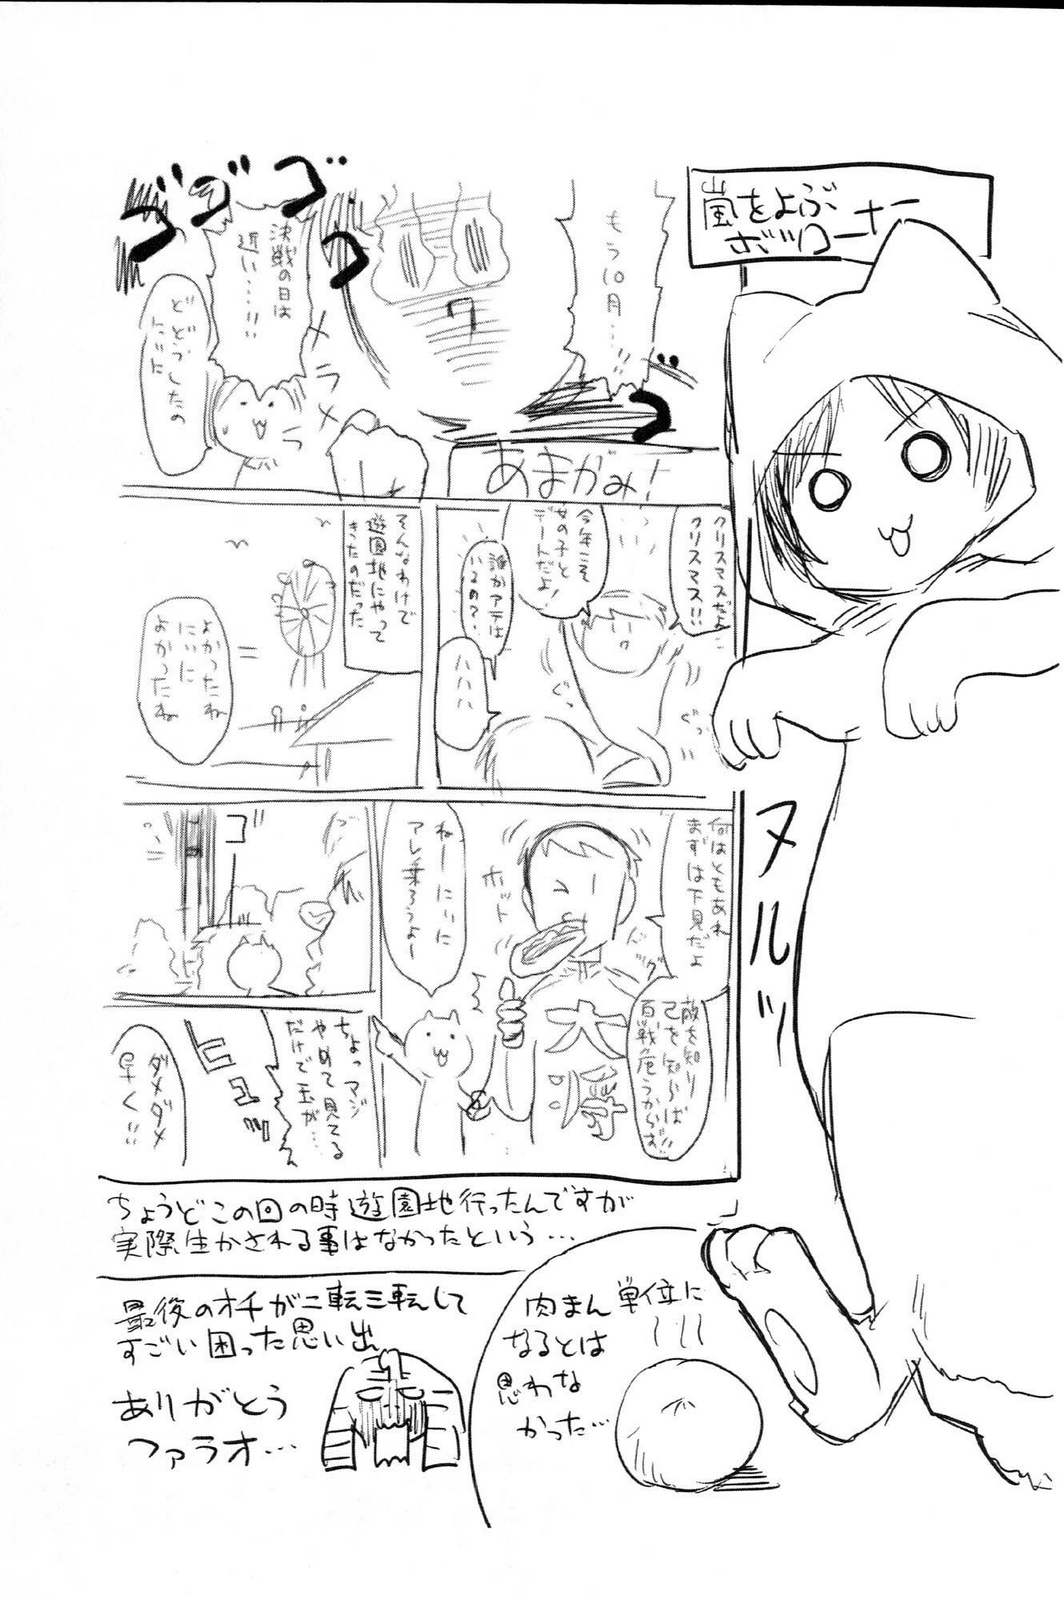 嵐をよぶ
ボツコーナー
もう10月…!!
ゴゴゴゴ
決戦の日は
近い……!!
メラメラ
どどうしたの
にいに
あまがみ!
クリスマスだよ…
クリスマス!!
今年こそ
女の子と
デートだよ!
誰かアテは
いるの?
ハハハ
ぐっ
ぐっ
そんなわけで
遊園地にやって
きたのだった
よかったね
にいに
よかったね
何はともあれ
まずは下見だよ
敵を知り
己を知らば
百戦危うからず!!
ホット
ドッグ
大将
ねーにいに
アレ乗ろうよー
ゴー
ちょっマジ
やめて見てる
だけで玉が…
ヒュッ
ダメダメ
早く!!
ヌルッ
ちょうどこの回の時遊園地行ったんですが
実際生かされる事はなかったという…
最後のオチが二転三転して
すごい困った思い出
ありがとう
ファラオ…
肉まん単位に
なるとは
思わな
かった…